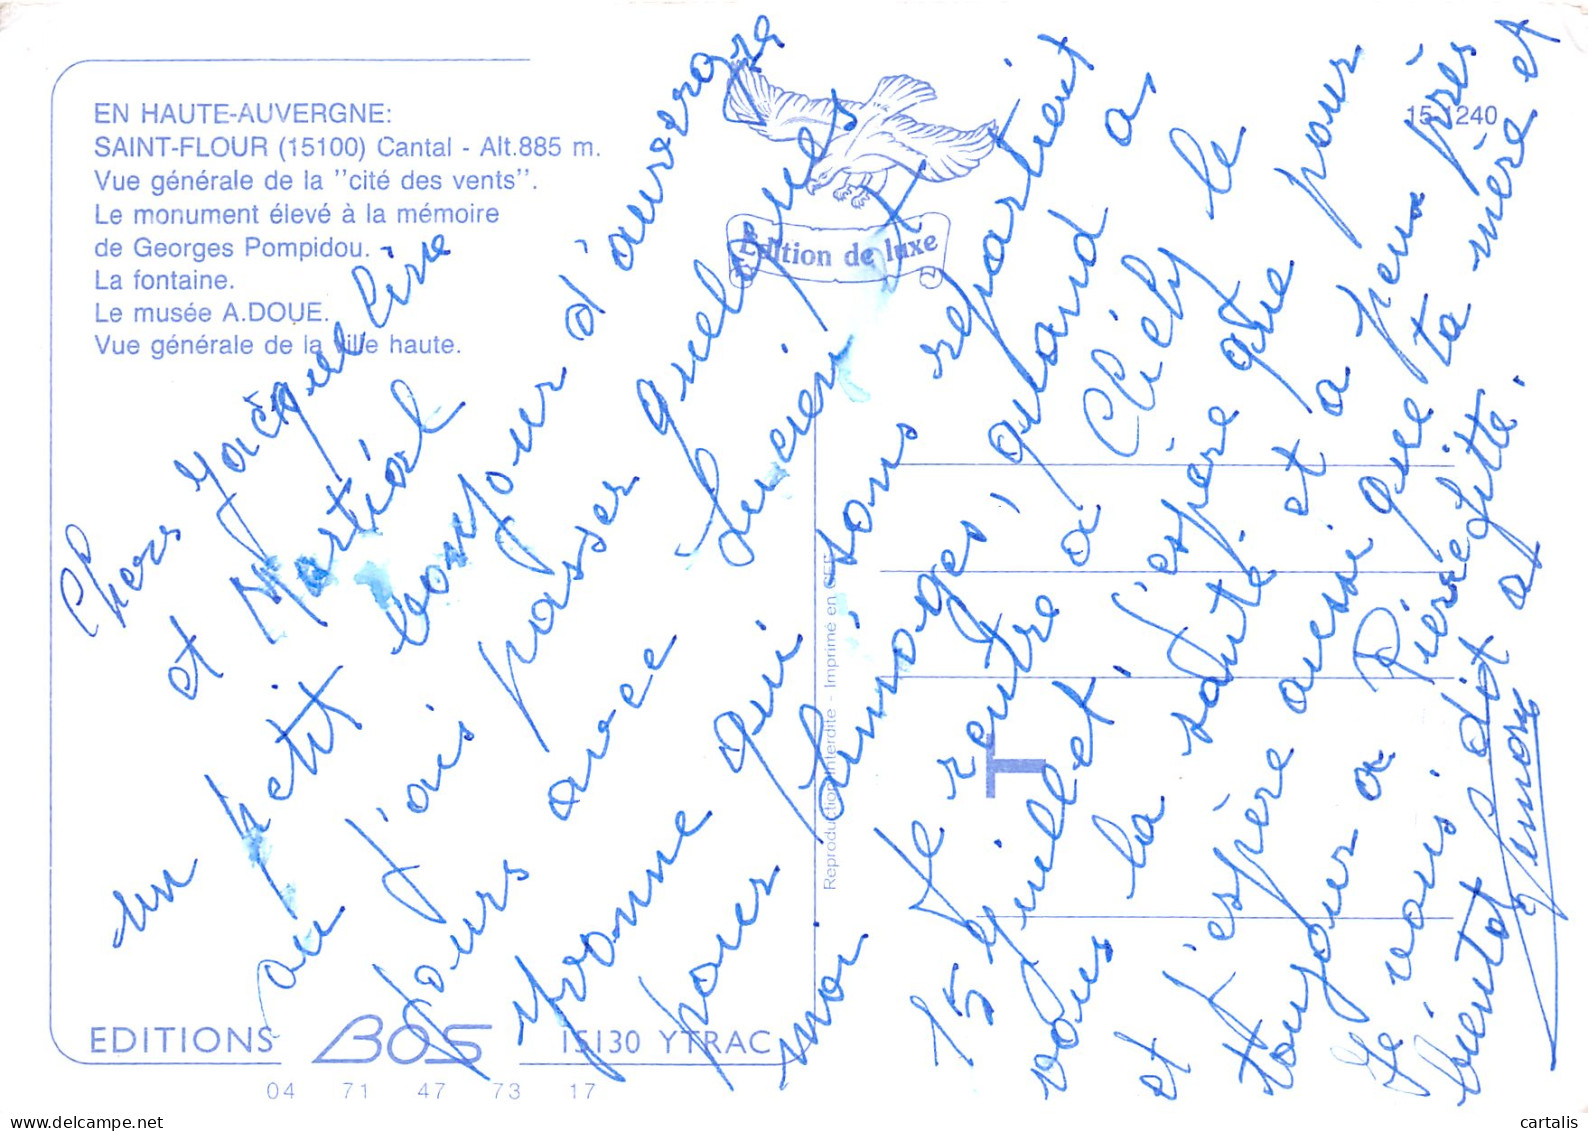 EN HAUTE-AUVERGNE:
SAINT-FLOUR (15100) Cantal - Alt.885 m.
Vue générale de la "cité des vents".
Le monument élevé à la mémoire
de Georges Pompidou.
La fontaine.
Le musée A.DOUE.
Vue générale de la ville haute.
Edition de luxe
15 1240
Chers Jacqueline
et Martial
un petit bonjour d'auvergne
ou j'ai passer quelques
jours avec Lucien et
Yvonne qui sons repartient
pour Limoges, quand a
moi Je rentre a Clichy le
15 Juillet, J'espère que pour
vous la santé et a peux près
et J'espère aussi que ta mère et
toujour a Pierrefitte.
Je vous dit a
bientot
Simon
Reproduction interdite - Imprimé en CEE
T
EDITIONS BOS 15130 YTRAC
04 71 47 73 17
cartalis